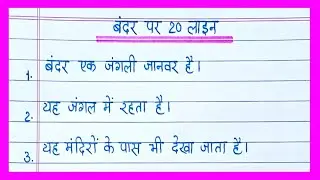 बंदर पर 20 लाइन
1. बंदर एक जंगली जानवर है।
2. यह जंगल में रहता है।
3. यह मंदिरों के पास भी देखा जाता है।